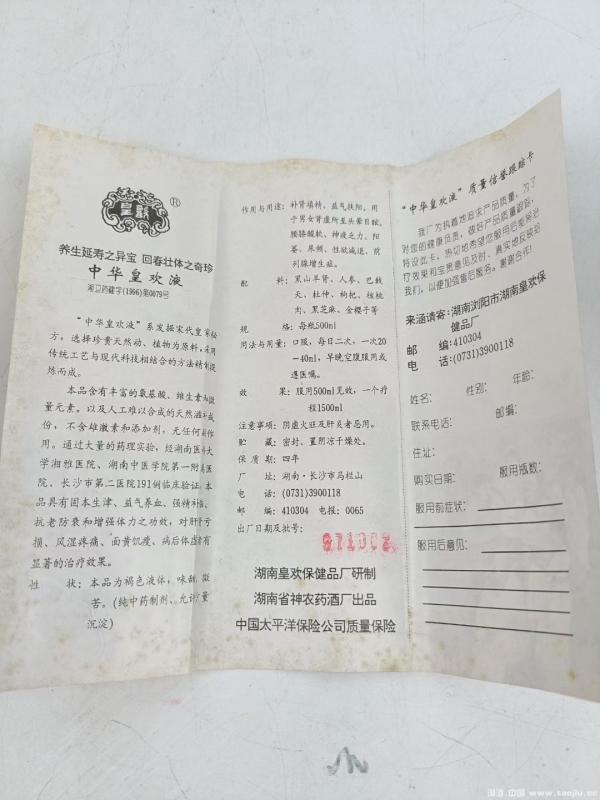 皇歡
®
养生延寿之异宝 回春壮体之奇珍
中华皇欢液
湘卫药健字(1996)第0079号
“中华皇欢液”系发掘宋代皇家秘
方，选择珍贵天然动、植物为原料，采用
传统工艺与现代科技相结合的方法精制提
炼而成。
本品含有丰富的氨基酸、维生素和微
量元素。以及人工难以合成的天然滋补成
份，不含雄激素和添加剂，无任何副作
用。通过大量的药理实验，经湖南医科大
学湘雅医院、湖南中医学院第一附属医
院、长沙市第二医院191例临床验证本
品具有固本生津、益气养血、强精补髓、
抗老防衰和增强体力之功效，对肝肾亏
损、风湿疼痛、面黄饥瘦、病后体虚有
显著的治疗效果。
性 状：本品为褐色液体，味甜、微
苦。(纯中药制剂、允许少量
沉淀)
作用与用途：补肾填精、益气扶阳。用
于男女肾虚所至头晕目眩、
腰膝酸软、神疲乏力、阳
萎、尿频、性欲减退、前
列腺增生症。
配 料：黑山羊肾、人参、巴戟
天、杜仲、枸杞、核桃
肉、黑芝麻、金樱子等
规 格：每瓶500ml
用法与用量：口服，每日二次，一次20
—40ml，早晚空腹服用或
遵医嘱。
效 果：服用500ml见效，一个疗
程1500ml
注意事项：阴虚火旺及肝炎者忌用。
贮 藏：密封、置阴凉干燥处。
保 质 期：四年
厂 址：湖南·长沙市马栏山
电 话：(0731)3900118
邮 编：410304 电报：0065
出厂日期及批号：
971002
湖南皇欢保健品厂研制
湖南省神农药酒厂出品
中国太平洋保险公司质量保险
“中华皇欢液”质量信誉跟踪卡
我厂为执着地追求产品质量，为了
对您的健康负责，做好产品质量跟踪，
特设此卡。热切地希望您服用后能将治
疗效果和宝贵意见及时、真实地反馈给
我们，以便加强售后服务。谢谢合作！
来涵请寄：湖南浏阳市湖南皇欢保
健品厂
邮 编：410304
电 话：(0731)3900118
姓名： 性别： 年龄：
联系电话： 邮编：
住址：
购买日期： 服用瓶数：
服用前症状：
服用后意见：
www.taojiu.cc